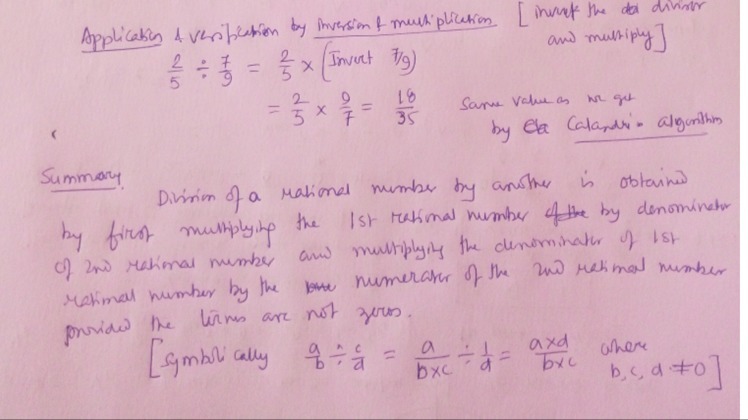 Application & verification by inversion & multiplication [invert the divisor
and multiply]
2/5 ÷ 7/9 = 2/5 × (Invert 7/9)
= 2/5 × 9/7 = 18/35 Same value as we get
by Calandri's algorithm
Summary
Division of a rational number by another is obtained
by first multiplying the 1st rational number by denominator
of 2nd rational number and multiplying the denominator of 1st
rational number by the numerator of the 2nd rational number
provided the terms are not zeros.
[Symbolically a/b ÷ c/d = a/b×c ÷ 1/d = a×d/b×c where
b, c, d ≠ 0]